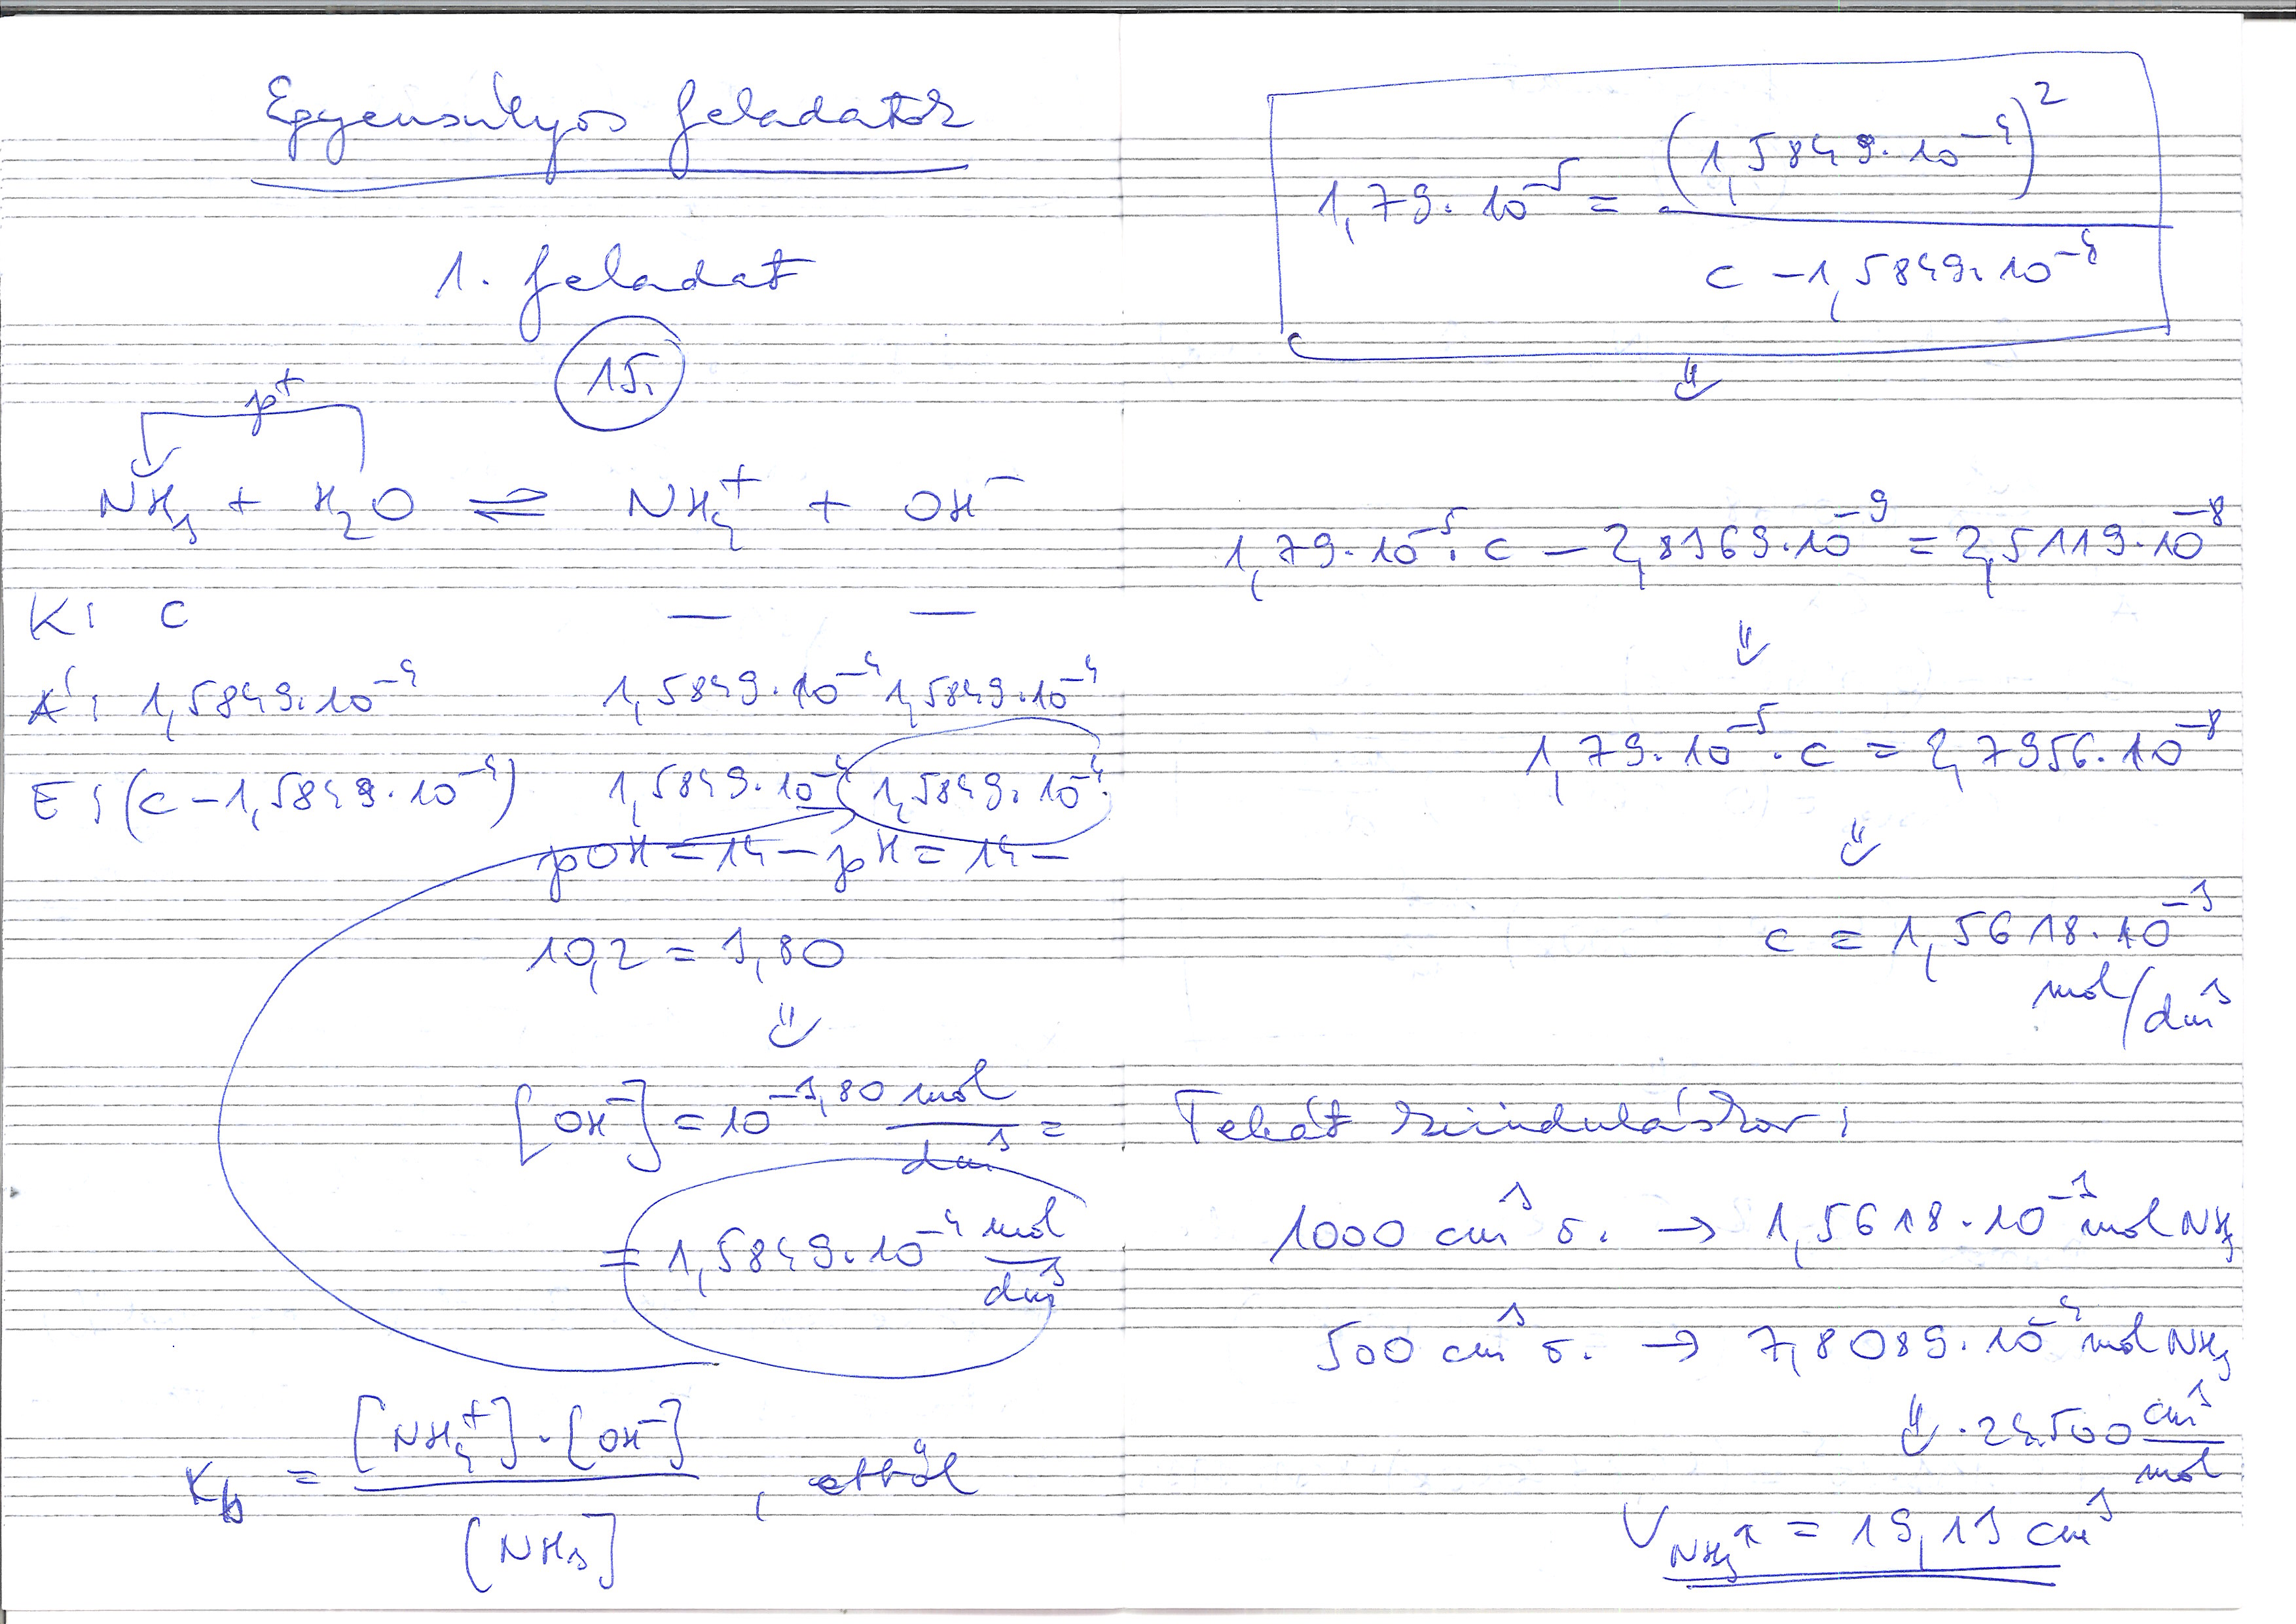 Egyensúlyos feladatok
1. feladat
15.
p⁺
NH₃ + H₂O ⇌ NH₄⁺ + OH⁻
K: c — —
Á: 1,5849·10⁻⁴ 1,5849·10⁻⁴ 1,5849·10⁻⁴
E: (c − 1,5849·10⁻⁴) 1,5849·10⁻⁴ 1,5849·10⁻⁴
pOH = 14 − pH = 14 −
10,2 = 3,80
⇓
[OH⁻] = 10⁻³,⁸⁰ mol/dm³ =
= 1,5849·10⁻⁴ mol/dm³
K_b = [NH₄⁺]·[OH⁻] / [NH₃] , ebből
1,79·10⁻⁵ = (1,5849·10⁻⁴)² / c − 1,5849·10⁻⁴
⇓
1,79·10⁻⁵·c − 2,8369·10⁻⁹ = 2,5119·10⁻⁸
⇓
1,79·10⁻⁵·c = 2,7956·10⁻⁸
⇓
c = 1,5618·10⁻³
mol/dm³
Tehát kiinduláskor:
1000 cm³ o. → 1,5618·10⁻³ mol NH₃
500 cm³ o. → 7,8089·10⁻⁴ mol NH₃
⇓ ·24.500 cm³/mol
V_NH₃ = 19,13 cm³